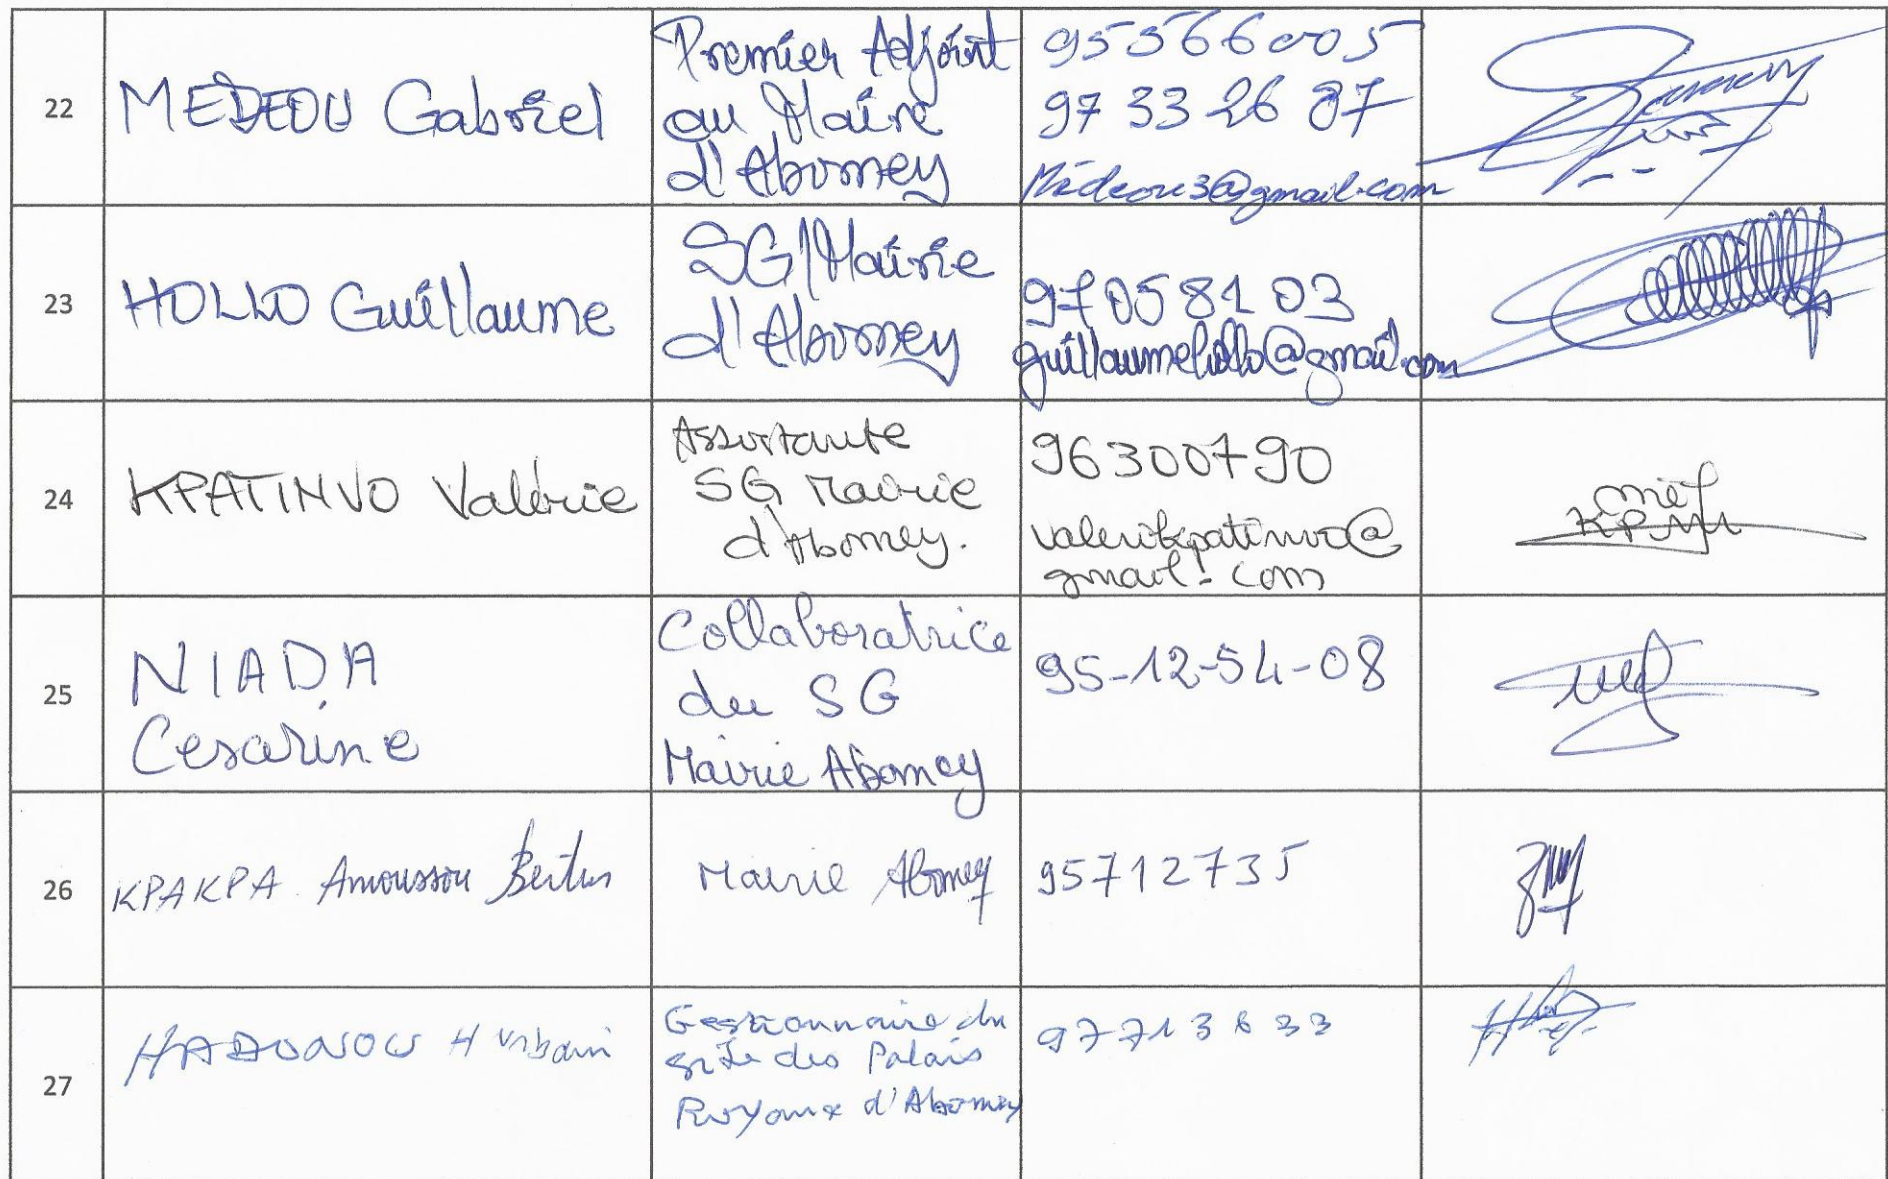 22
MEDEOU Gabriel
Premier Adjoint
au Maire
d'Abomey
95566005
97 33 26 87
Médeou3@gmail.com
23
HOLLO Guillaume
SG/Mairie
d'Abomey
97058103
guillaumehollo@gmail.com
24
KPATINVO Valérie
Assistante
SG Mairie
d'Abomey.
96300790
valerikpatinvo@
gmail.com
25
NIADA
Cesarine
Collaboratrice
du SG
Mairie Abomey
95-12-54-08
26
KPAKPA Amoussou
Mairie Abomey
95712735
27
H Urbain
Gestionnaire du
site des Palais
Royaux d'Abomey
97713833